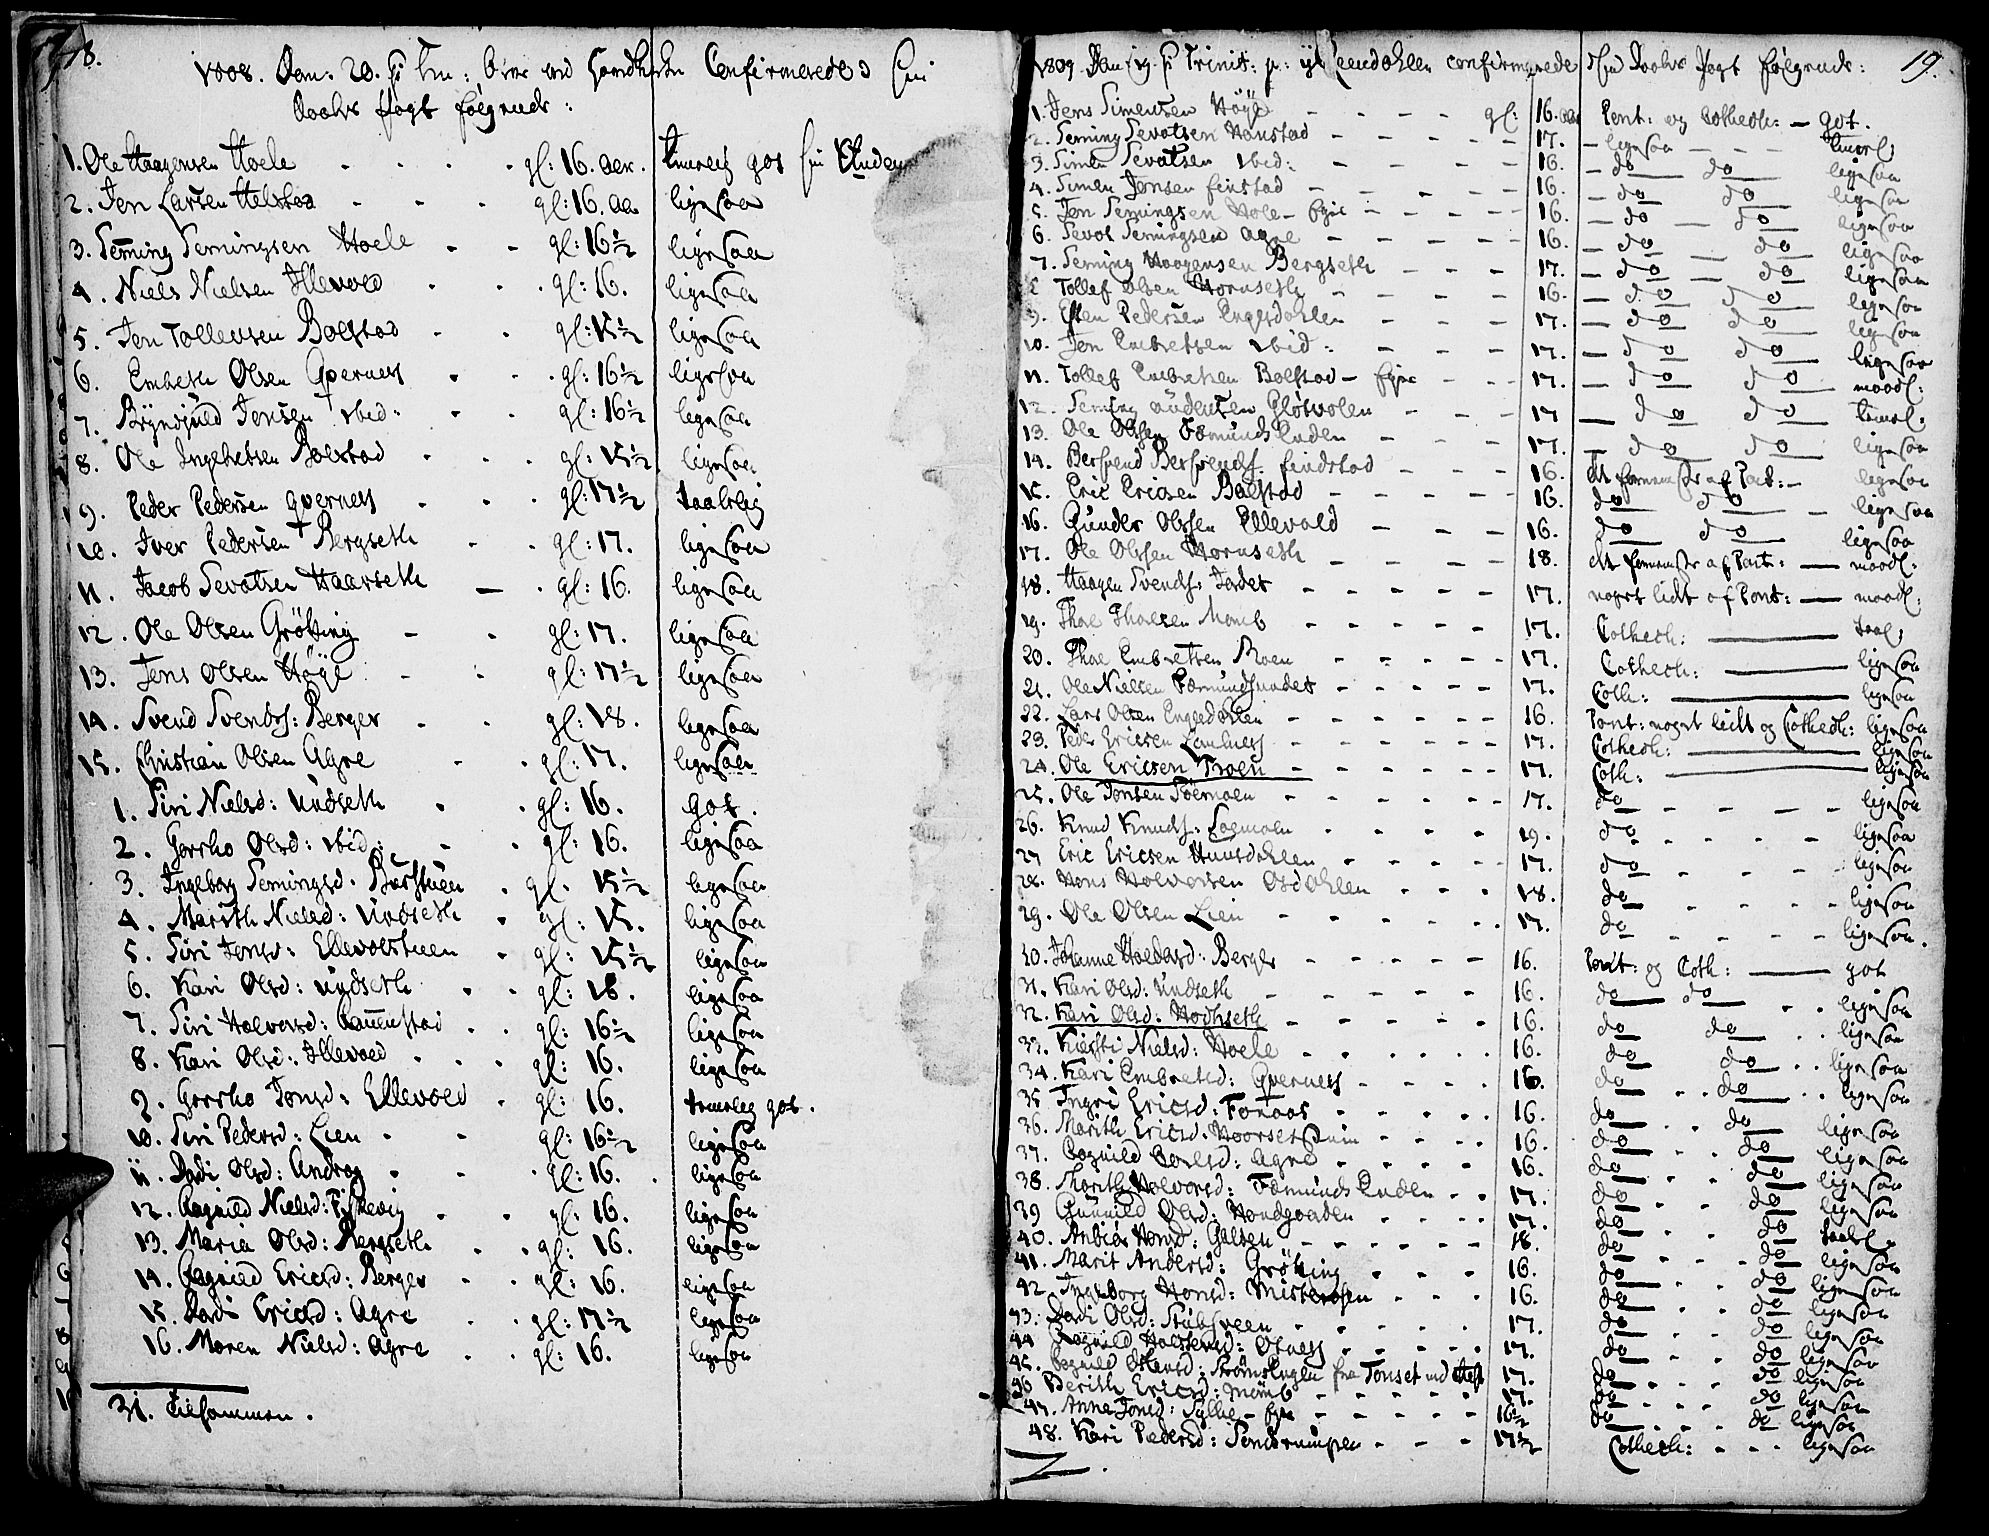 18.
1808. Dom: 20. p Trin: Confirmerede
Daabs Pagt følgende:
1. Ole Haagensen Hoele gl: 16. aar. temmelig got
2. Jon Larsen Helstad gl: 16. aar ligesaa
3. Semming Semingsen Hoele gl: 16 1/2 ligesaa
4. Niels Nielsen Illevold gl: 16. ligesaa
5. Jon Tollevsen Bolstad gl: 15 1/2 ligesaa
6. Embreth Olsen Qverness gl: 16 1/2 ligesaa
7. Brynjuld Jonsen ibid: gl: 16 1/2 ligesaa
8. Ole Ingebretsen Bolstad gl: 15 1/2 ligesaa
9. Peder Pedersen Qverness gl: 17 1/2 taalelig
10. Iver Pedersen Bergseth gl: 17. ligesaa
11. Jacob Sevatsen Haarseth gl: 16. ligesaa
12. Ole Olsen Grötting gl: 17. ligesaa
13. Jens Olsen Höye gl: 17 1/2 ligesaa
14. Svend Svends: Berger gl: 18. ligesaa
15. Christian Olsen Agre gl: 17. ligesaa
1. Siri Nielsd: Undseth gl: 16. got.
2. Goroho Olsd: ibid: gl: 16. ligesaa
3. Ingeborg Semingsd. gl. 15 1/2 ligesaa
4. Marith Nielsd: Undseth gl: 15. ligesaa
5. Siri Jonsd: gl: 15 1/2 ligesaa
6. Kari Olsd: Undseth gl: 18. ligesaa
7. Siri Halvorsd: gl: 16 1/2 ligesaa
8. Kari Olsd: Illevold gl: 16. ligesaa
9. Goroho Jonsd: Ellevold gl: 16. temmelig got.
10. Siri Pedersd: Lien gl: 16 1/2 ligesaa
11. Dordi Olsd: Andrag gl: 16. ligesaa
12. Ragnild Nielsd: Fiskevig gl: 16. ligesaa
13. Maria Olsd: Bergseth gl: 16. ligesaa
14. Ragnild Ericsd: Berger gl: 16. ligesaa
15. Dordi Ericsd: Agre gl: 17 1/2 ligesaa
16. Maren Nielsd: Agre gl: 16. ligesaa
31. tilsammen.
19.
1809. Trinit: confirmerede Daabs Pagt følgende:
1. Jens Simensen Höye gl: 16. aar Pont: og Cathech: — got.
2. Seming Sevatsen Hanstad 17. ligesaa temel:
3. Simen Sevatsen ibid: 16. do do ligesaa
4. Simen Jonsen Finstad 16. do do ligesaa
5. Jon Semingsen Hole 16. do do ligesaa
6. Sevat Semingsen Agre 16. do do ligesaa
7. Seming Haagensen Bergseth 17. do do ligesaa
8 Tollef Olsen Hornseth 16. do do ligesaa
9. Esten Pedersen Engerdahlen 17. do do ligesaa
10. Jon Embretsen ibid: 17. do do ligesaa
11. Tollef Embretsen Bolstad 17. do do maadl:
12. Seming Andersen Glötvolen 17 do do temel.
13. Ole Olsen Fæmunds Enden 17. do do ligesaa
14. Berfvend Berfvends. Findstad 16. det fornemste af Pont: — ligesaa
15. Eric Ericsen Bolstad 16. do do ligesaa
16. Gunder Olsen Ellevold 16. do do ligesaa
17. Ole Olsen Hornseth 18. det fornemste af Pont: — maadl:
18. Haagen Svends: Jordet 17. noget lidt af Pont: — maadl:
19. Thoe Thoesen Momb 17. Cathech: taal:
20. Thoe Embretsen Moen 17. Cathech: ligesaa
21. Ole Nielsen Fæmundsundet 17. Cath: ligesaa
22. Lars Olsen Engerdahlen 16. Pont: noget lidt og Cathech: ligesaa
23. Peder Ericsen 17. Cathech: ligesaa
24. Ole Ericsen Troen 17. Cath: ligesaa
25. Ole Jonsen 17. do ligesaa
26. Knud Knuds: 19. do ligesaa
27 Eric Ericsen 17. do ligesaa
28. Hans Halvorsen Osdahlen 18. do ligesaa
29. Ole Olsen Lien 17. do ligesaa.
30. Johanne Haldorsd: Berger 16. Pont: og Cath: got
31. Kari Olsd: Undseth 16. do do ligesaa
32. Kari Olsd: 16. do do ligesaa
33. Kiersti Nielsd: Hoele 16. do do ligesaa
34. Kari Embretsd: Qverness 16. do do ligesaa
35 Ingri Ericsd: Fonaas 16. do do ligesaa
36. Marith Ericsd: 16. do do ligesaa
37. Ragnild Agre 16. do do ligesaa
38. Marith Halvorsd: Fæmunds Enden 17. do do ligesaa
39 Gunnild Olsd: Hondgarden 17. do do ligesaa
40. Hansd: Galten 18. do do taalel.
41. Marit Andersd: Grötting 16. do do ligesaa
42. Ingeborg Hansd: Misterosen 16. do do ligesaa
43. Dordi Olsd: 17. do do ligesaa
44 Ragnild Halstensd: Otness 17. do do ligesaa
45. Ragnild Ostensd: fra Tonset 17. do do ligesaa
46 Berith Ericsd: Momb 17. do do ligesaa
47. Anne Jonsd: Syllie 16 1/2 do do ligesaa
48. Kari Pedersd: 17 1/2 Cathech: ligesaa